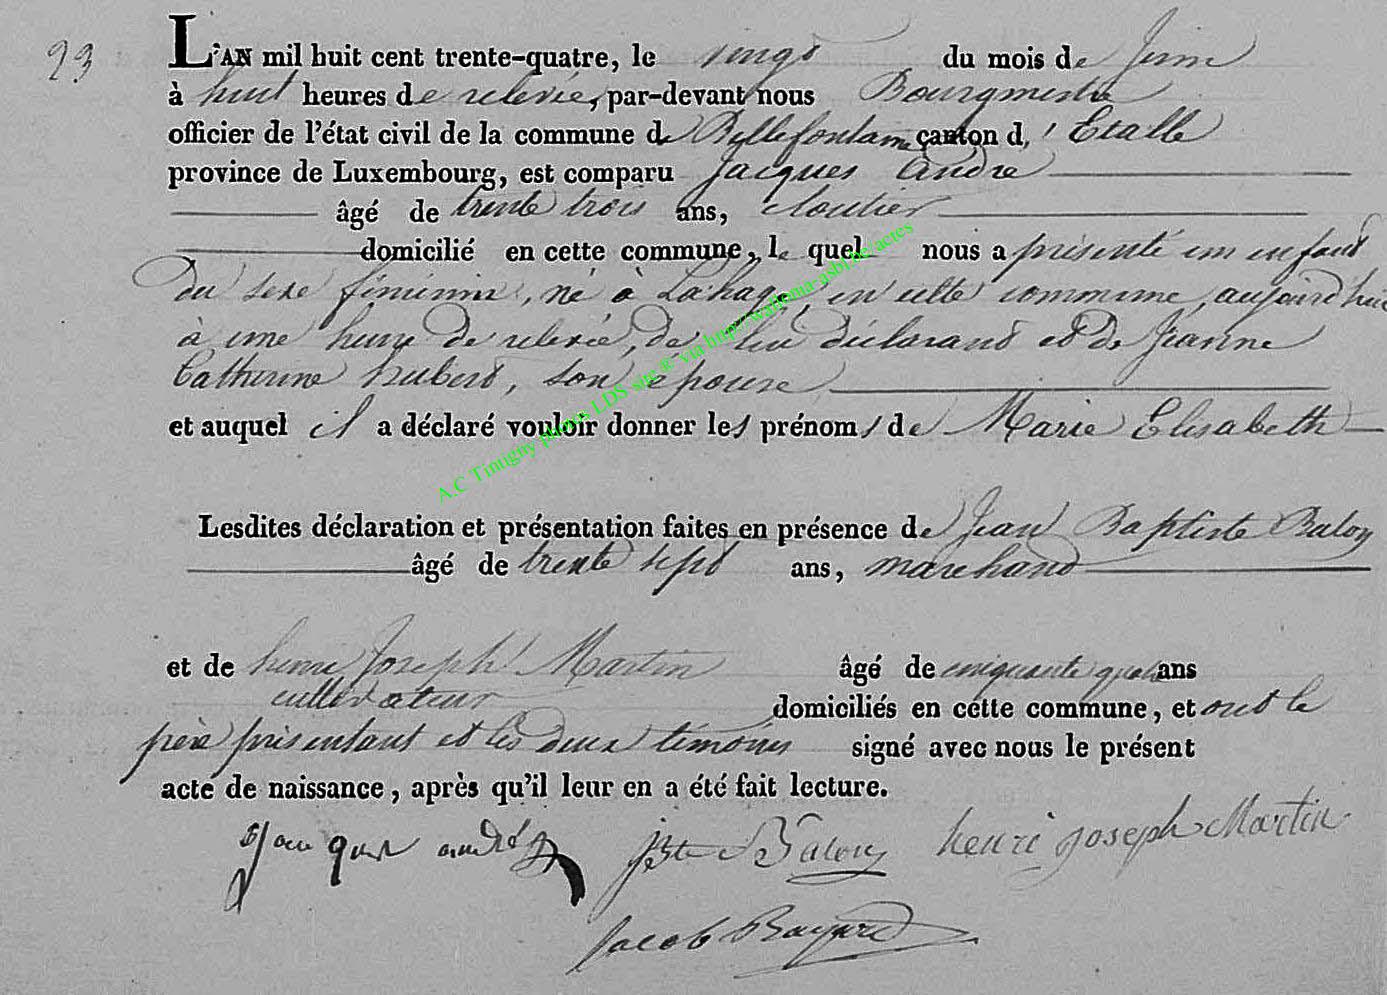 23
L'AN mil huit cent trente-quatre, le vingt du mois de Juin
à huit heures de relevée, par-devant nous Bourgmestre
officier de l'état civil de la commune de Bellefontaine canton d'Etalle
province de Luxembourg, est comparu Jacques André
âgé de trente trois ans, cloutier
domicilié en cette commune, le quel nous a présenté un enfant
du sexe féminin, né à Lahage, en cette commune, aujourd'hui
à une heure de relevée, de lui déclarant et de Jeanne
Catherine hubert, son épouse,
et auquel il a déclaré vouloir donner les prénoms de Marie Elisabeth
Lesdites déclaration et présentation faites en présence de Jean Baptiste Balon
âgé de trente sept ans, marchand
et de henri Joseph Martin âgé de cinquante quatre ans
cultivateur domiciliés en cette commune, et ont le
père présentant et les deux témoins signé avec nous le présent
acte de naissance, après qu'il leur en a été fait lecture.
Jacques andré JBte Balon henri joseph Martin
Jacob Bayard
A.C Tintigny photos LDS site ® via http://walloma-asbl.be/actes